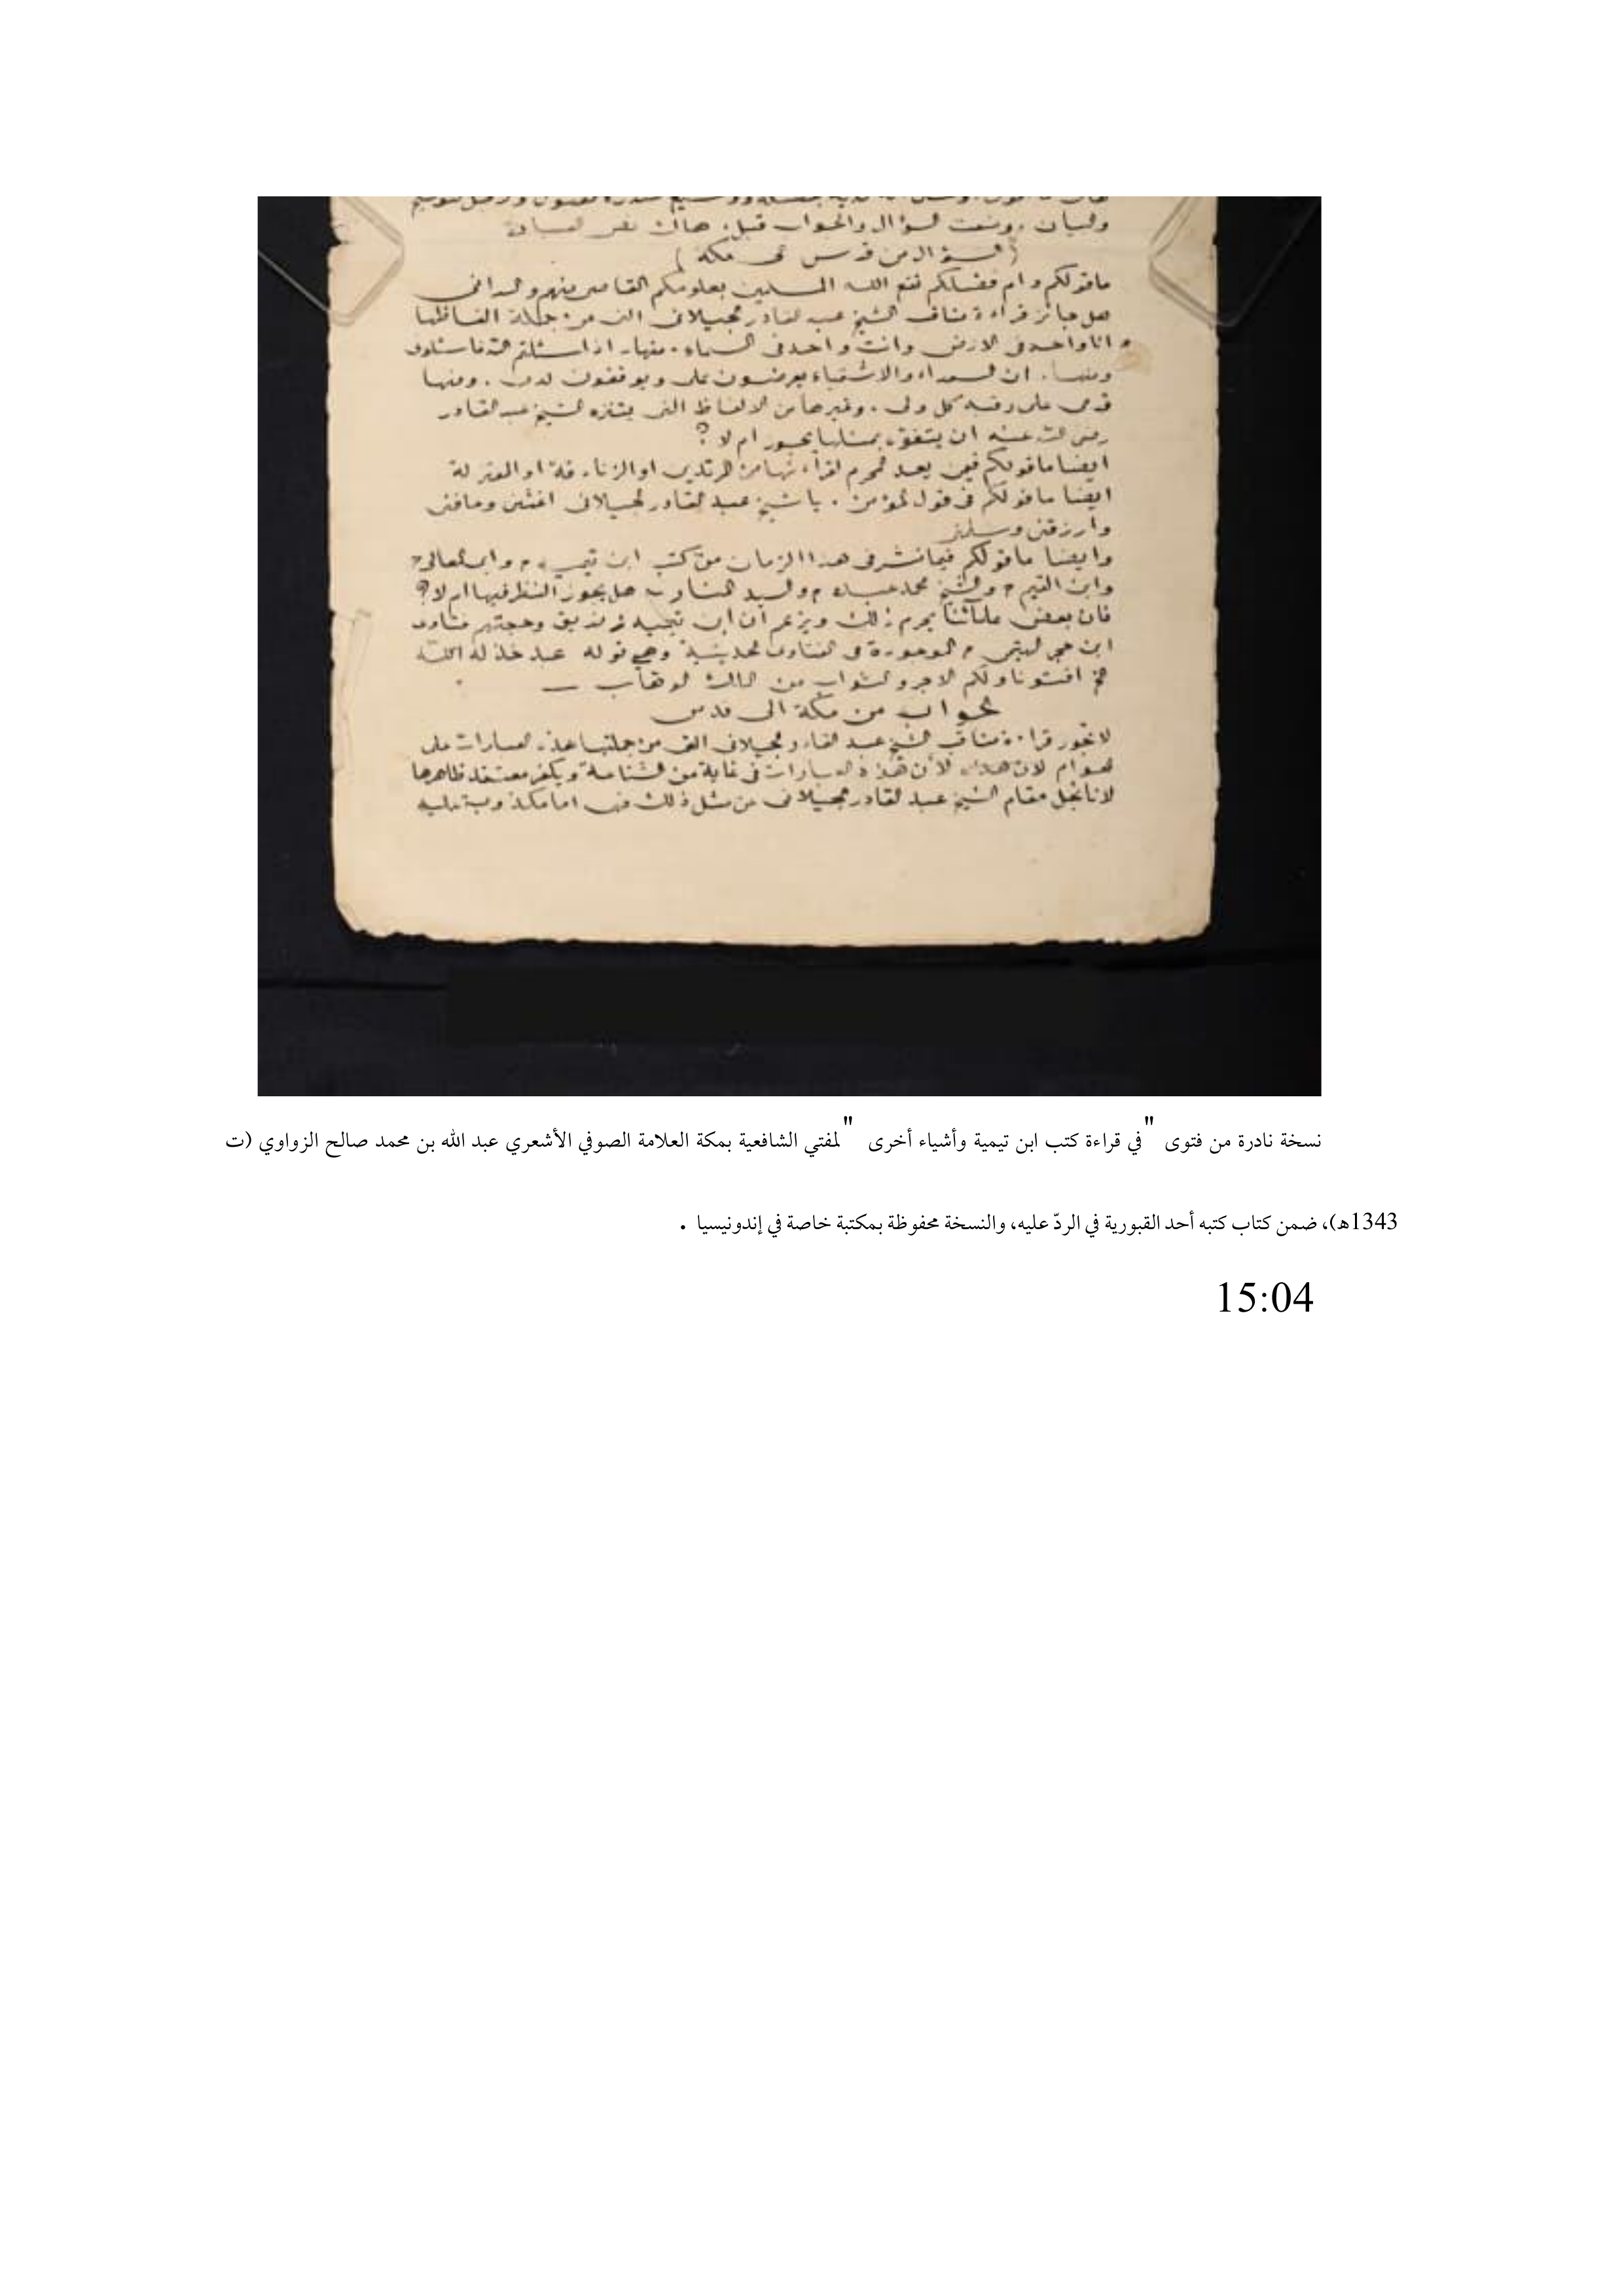 والبيان . وضعت السؤال والجواب قبل . هاك نص العبارة
( السؤال من قدس الى مكة )
ما قولكم دام فضلكم نفع الله المسلمين بعلومكم القاصى منهم والدانى
هل جائز قراءة مناقب الشيخ عبد القادر الجيلانى التى من جملة الفاظها
انا واحد فى الارض وانت واحد فى السماء . منها . اذا سئلتم الله فاسئلوه
ومنها . ان السعداء والاشقياء يعرضون على ويوقفون لدى . ومنها
قدمى على رقبة كل ولى . وغيرها من الالفاظ التى يتنزه الشيخ عبد القادر
رضى الله عنه ان يتفوق بمثلها يجوز ام لا ؟
ايضا ما قولكم فيمن يعد المحرم لقراءتها من المرتدين او الزنادقة او المعتزلة
ايضا ما قولكم فى قول المؤمن . يا شيخ عبد القادر الجيلانى اغثنى وعافنى
وارزقنى وسلمنى
وايضا ما قولكم فيما نشر فى هذا الزمان من كتب ابن تيمية وابى المعالى
وابن القيم والشيخ محمد عبده والسيد هل يجوز النظر فيها ام لا ؟
فان بعض علمائنا يحرم ذلك ويزعم ان ابن تيمية زنديق وحجتهم فتاوى
ابن حجر الهيتمى الموجودة فى الفتاوى الحديثية وهى قوله عبد خذله الله
الخ افتونا ولكم الاجر والثواب من المالك الوهاب
الجواب من مكة الى قدس
لا تجوز قراءة مناقب الشيخ عبد القادر الجيلانى التى من جملتها هذه العبارات على
العوام لان هذه لأن هذه العبارات فى غاية من الشناعة ويكفر معتقد ظاهرها
لانا نجل مقام الشيخ عبد القادر الجيلانى عن مثل ذلك فهى اما مكذوبة عليه
نسخة نادرة من فتوى "في قراءة كتب ابن تيمية وأشياء أخرى " لمفتي الشافعية بمكة العلامة الصوفي الأشعري عبد الله بن محمد صالح الزواوي (ت
1343هـ)، ضمن كتاب كتبه أحد القبورية في الردّ عليه، والنسخة محفوظة بمكتبة خاصة في إندونيسيا .
15:04